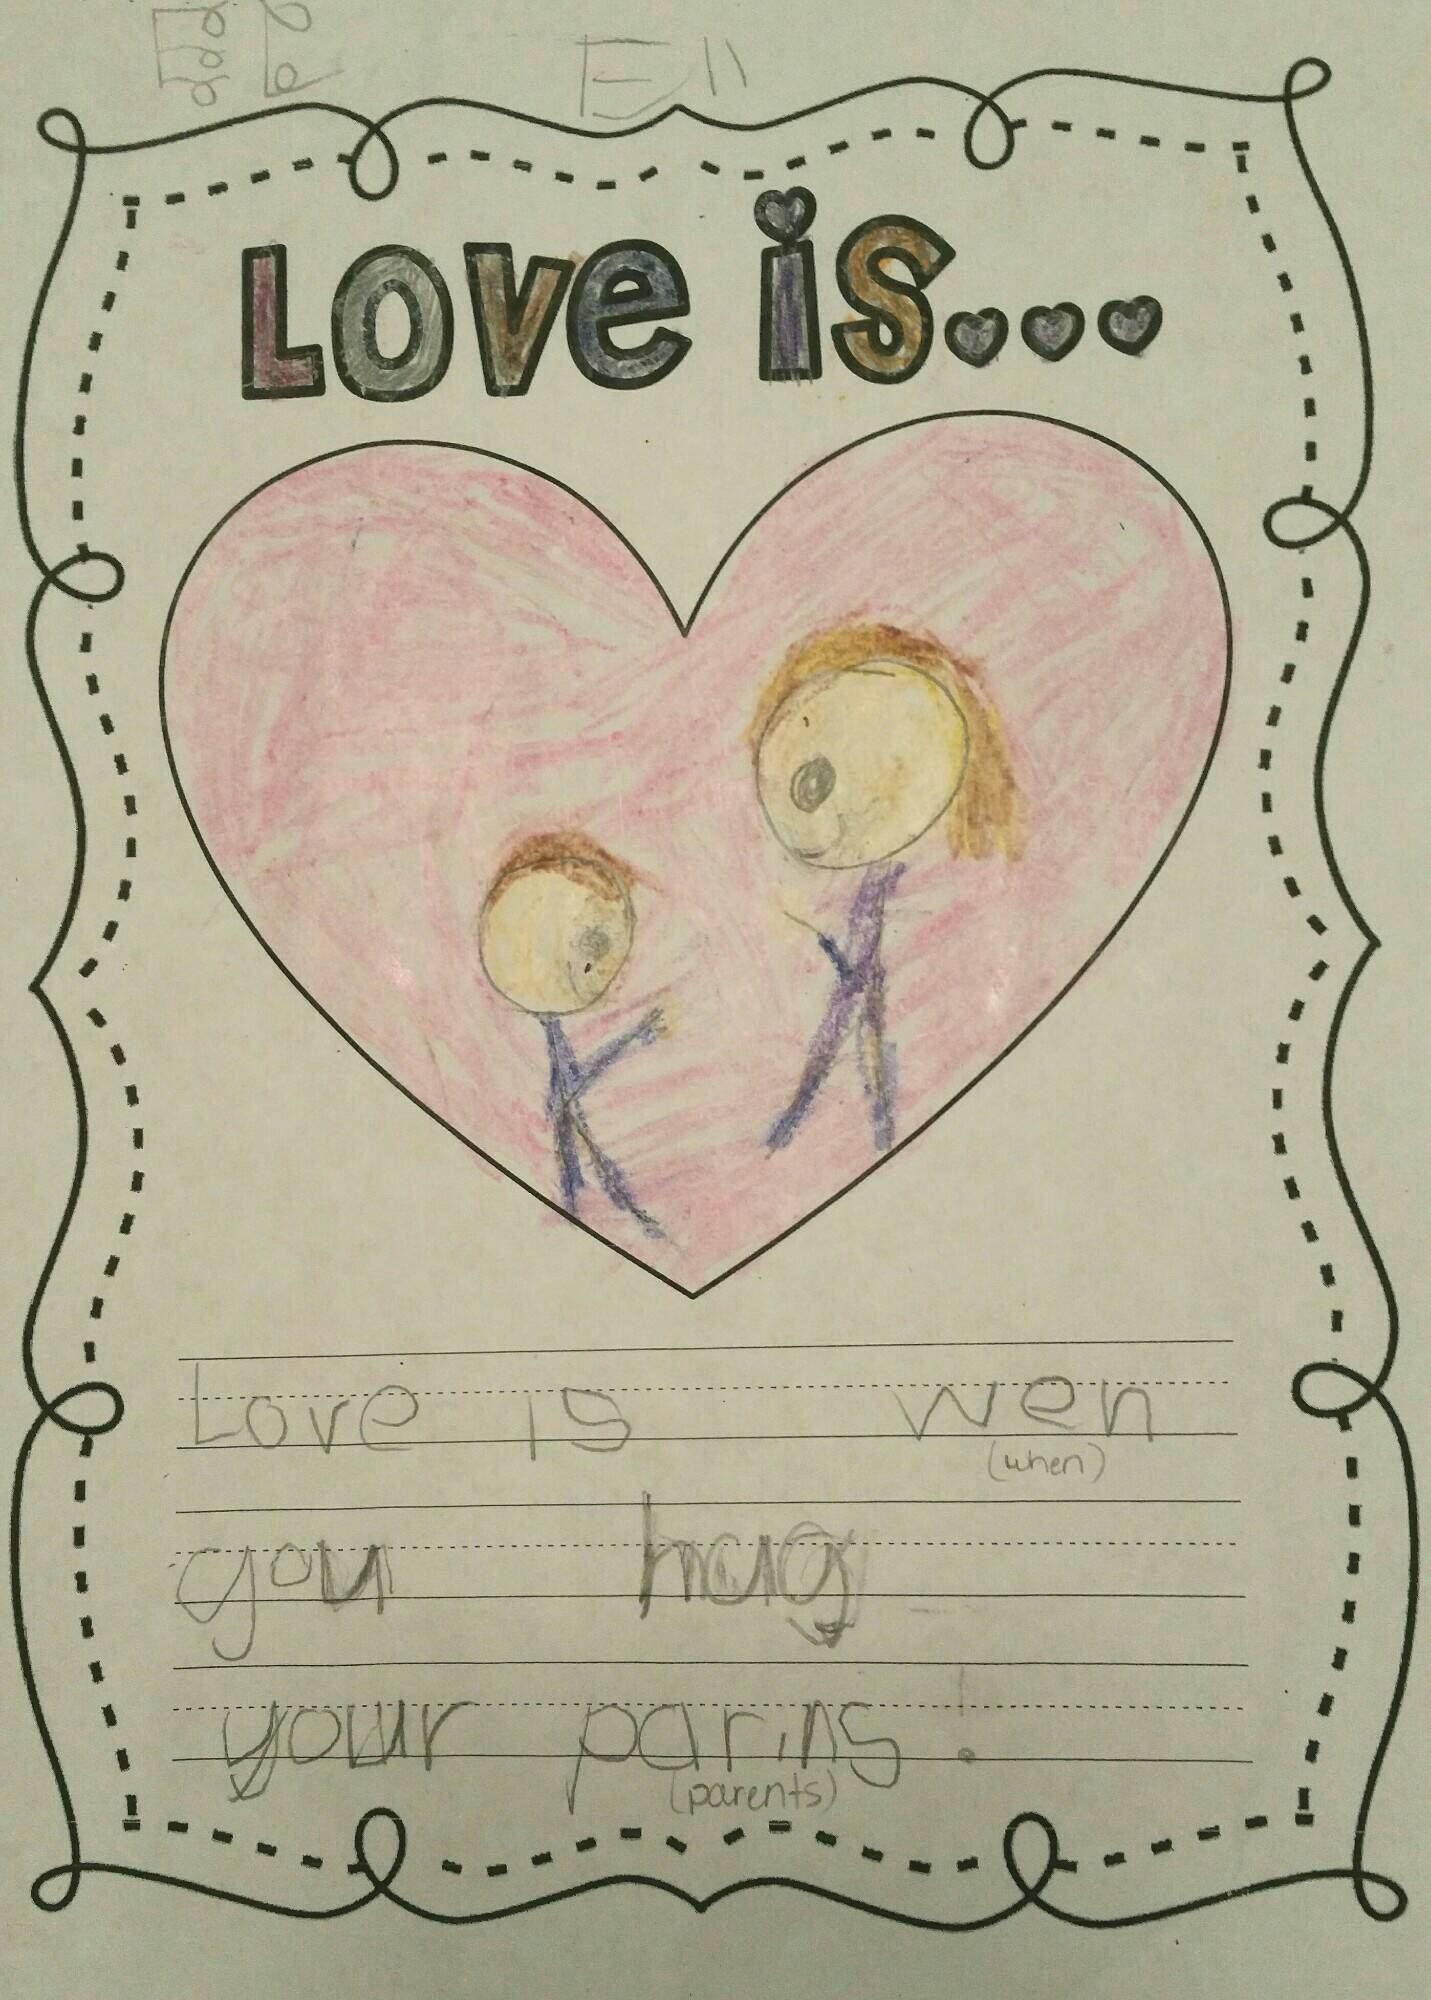 Ell
Love is...
Love is wen
(when)
you hug
your parins!
(parents)